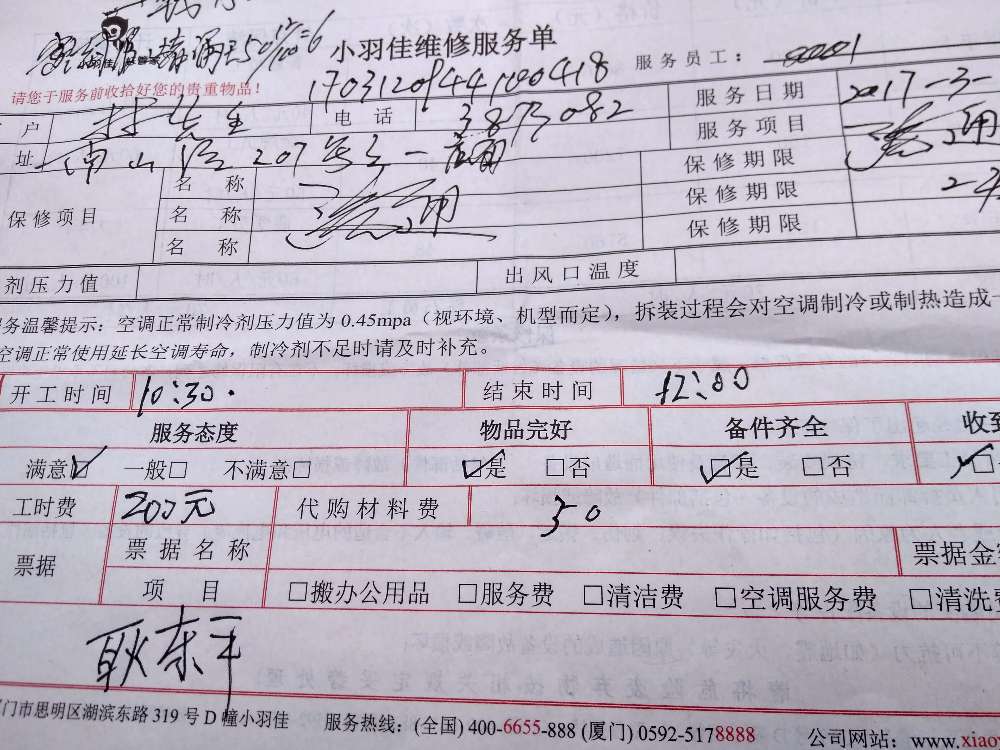 小羽佳维修服务单
服务员工：
请您于服务前收拾好您的贵重物品！
17031209441100418
服务日期 2017-3-
户 林先生 电话 3873082
服务项目
址 南山路207号之一
保修期限
保修项目 名称
名称 保修期限
名称 保修期限
剂压力值 出风口温度
务温馨提示：空调正常制冷剂压力值为0.45mpa（视环境、机型而定），拆装过程会对空调制冷或制热造成一
空调正常使用延长空调寿命，制冷剂不足时请及时补充。
开工时间 10:30. 结束时间 12:00
服务态度 物品完好 备件齐全 收到
满意☑ 一般□ 不满意□ ☑是 □否 ☑是 □否
工时费 200元 代购材料费 50
票据 票据名称 票据金额
项目 □搬办公用品 □服务费 □清洁费 □空调服务费 □清洗费
耿东平
门市思明区湖滨东路319号D幢小羽佳 服务热线：(全国) 400-6655-888 (厦门) 0592-5178888 公司网站：www.xiaoy